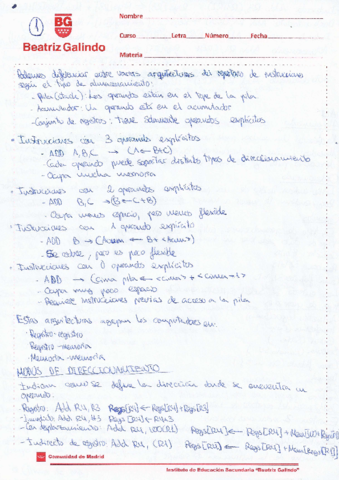 Nombre
Curso Letra Número Fecha
Materia
BG
Beatriz Galindo
Podemos diferenciar entre varias arquitecturas del repertorio de instrucciones
según el tipo de almacenamiento:
- Pila (stack): Los operandos están en el tope de la pila
- Acumulador: Un operando está en el acumulador
- Conjunto de registros: Tiene solamente operandos explícitos
• Instrucciones con 3 operandos explícitos
- ADD A,B,C → (A ← B+C)
- Cada operando puede soportar distintos tipos de direccionamiento
- Ocupa mucha memoria
• Instrucciones con 2 operandos explícitos
- ADD B,C → (B ← C+B)
- Ocupa menos espacio, pero menos flexible
• Instrucciones con 1 operando explícito
- ADD B → (Acum ← B+ <Acum>)
pero es poco flexible
• Instrucciones con 0 operandos explícitos
- ADD → (cima pila ← <cima> + <cima-1>)
- Ocupa muy poco espacio
- Requiere instrucciones previas de acceso a la pila
Estas arquitecturas los computadores en:
- Registro-registro
- Registro-memoria
- Memoria-memoria
MODOS DE DIRECCIONAMIENTO
- Indican como se define la dirección donde se encuentra un
operando.
- Registro: Add R4, R3 Regs[R4] ← Regs[R4]+Regs[R3]
- Inmediato Add R4, #3 Regs[R4] ← R4+3
- Con desplazamiento: Add R4, 100(R1) Regs[R4] ← Regs[R4] + Mem[100+Regs[R1]]
- Indirecto de registro: Add R4, (R1) Regs[R4] ← Regs[R4] + Mem[Regs[R1]]
Comunidad de Madrid
Instituto de Educación Secundaria "Beatriz Galindo"